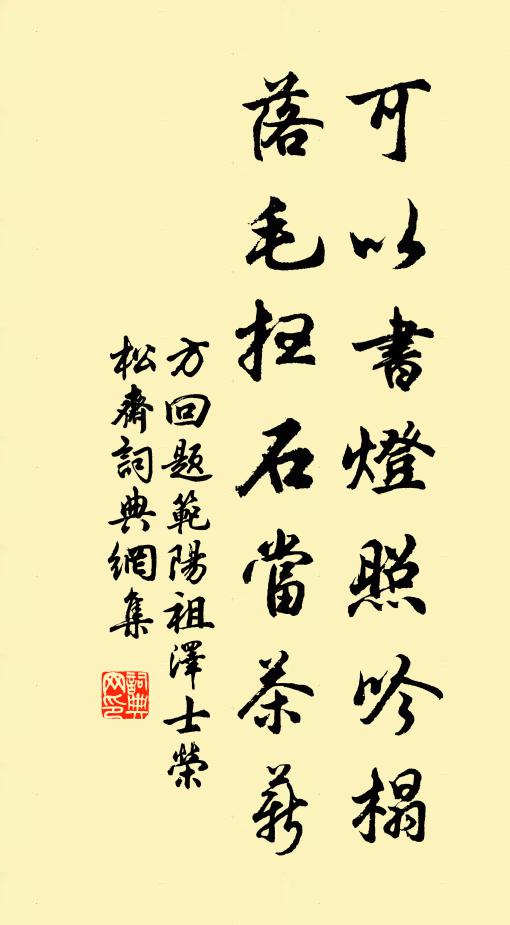 可以書燈照吟榻
落毛石當茶薪
方回題範陽祖澤士榮
松齋詞典網集
詞典网印